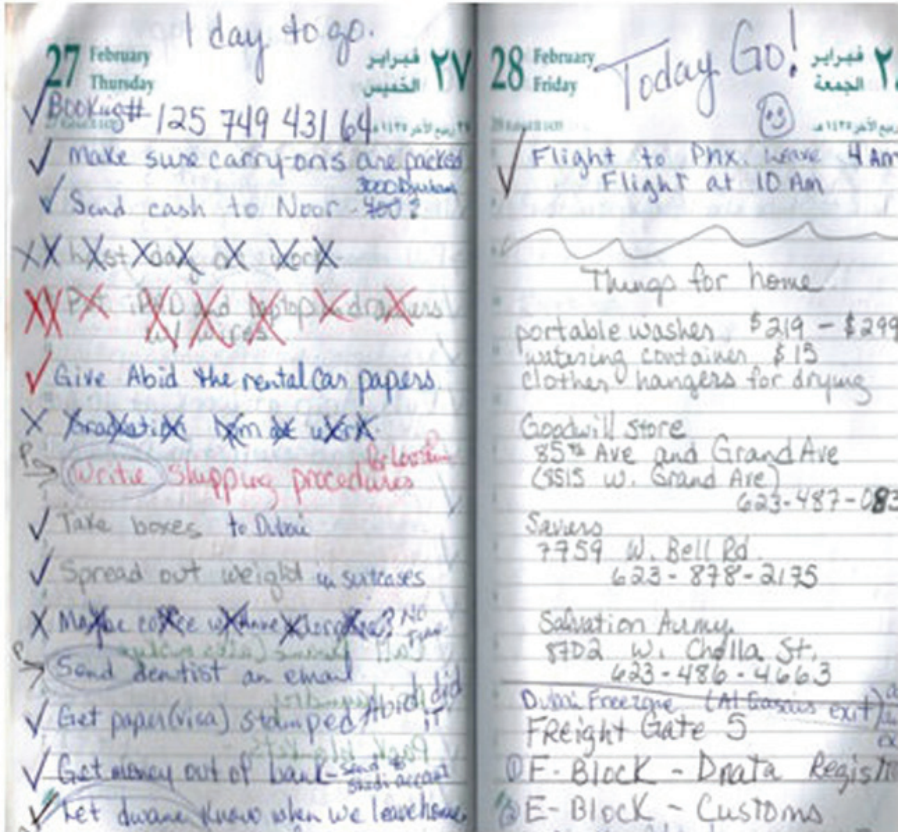 1 day to go.
27 February
Thursday
فبراير ٢٧
الخميس
Booking# 125 749 431 64
Make sure carry-ons are packed
3000 Dirham
Send cash to Noor - 400?
last day of work
Put and laptop drawers
Give Abid the rental car papers
Graduation from work
Write shipping procedures
Take boxes to Dubai
Spread out weight in suitcases
Maybe coffee w/ No
Time
Send dentist an email
Get paper (visa) stamped Abid did it
Get money out of bank - send to
Saudi account
Let dwane know when we leave home
28 February
Friday
Today Go!
فبراير
الجمعة
Flight to Phx. leave 4 Am
Flight at 10 Am
Things for home
portable washer $219 - $299
watering container $15
clothes hangers for drying
Goodwill store
85th Ave and Grand Ave
(8515 W. Grand Ave)
623-487-083
Savers
7759 W. Bell Rd.
623-878-2175
Salvation Army
8702 W. Cholla St.
623-486-4663
Dubai Freezone (Al Gasais exit)
Freight Gate 5
① F-Block - Dnata Regist
② E-Block - Customs